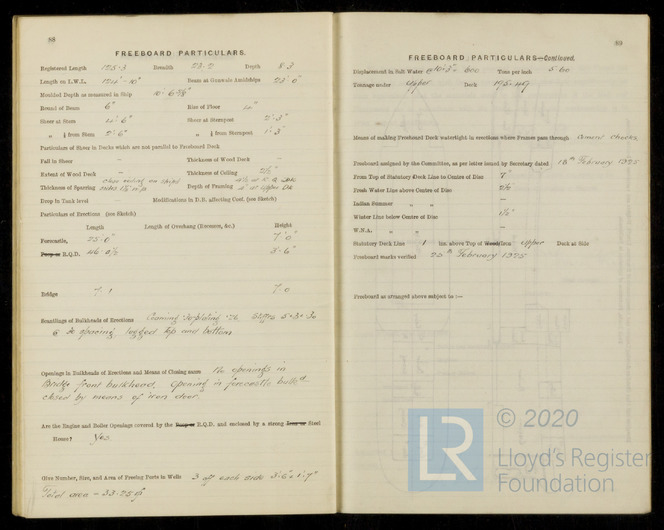 88
FREEBOARD PARTICULARS.
Registered Length 125·3 Breadth 23·2 Depth 8·3
Length on L.W.L. 124'-10" Beam at Gunwale Amidships 23'·0"
Moulded Depth as measured in Ship
Round of Beam 6" Rise of Floor 4"
Sheer at Stem 4'·6" Sheer at Sternpost 2'·3"
„ ¼ from Stem 2'·6" „ ¼ from Sternpost 1'·3"
Particulars of Sheer in Decks which are not parallel to Freeboard Deck
Fall in Sheer — Thickness of Wood Deck —
Extent of Wood Deck — Thickness of Ceiling 2½"
Thickness of Sparring Depth of Framing
Drop in Tank level — Modifications in D.B. affecting Coef. (see Sketch)
Particulars of Erections (see Sketch)
Length Length of Overhang (Recesses, &c.) Height
Forecastle, 23·0" 7'·0"
Poop or R.Q.D. 46·0½ 3'·6"
Bridge 7·1 7·0
Scantlings of Bulkheads of Erections Coaming plating ·26 Stiffrs 5·3·30
30 spacing lugged top and bottom
Openings in Bulkheads of Erections and Means of Closing same No openings in
Bridge front bulkhead. Opening in forecastle bulkd
closed by means of iron door.
Are the Engine and Boiler Openings covered by the Poop or R.Q.D. and enclosed by a strong Iron or Steel
House? Yes
Give Number, Size, and Area of Freeing Ports in Wells 3 off each side 3'·6"×1'·7"
Total area – 33·25
89
FREEBOARD PARTICULARS—Continued.
Displacement in Salt Water @10'·3"= 600 Tons per inch 5·60
Tonnage under Upper Deck 195·49
Means of making Freeboard Deck watertight in erections where Frames pass through Cement Chocks
Freeboard assigned by the Committee, as per letter issued by Secretary dated 18th February 1925
From Top of Statutory Deck Line to Centre of Disc 7"
Fresh Water Line above Centre of Disc 2½
Indian Summer „ „ —
Winter Line below Centre of Disc 1½"
W.N.A. „ „ —
Statutory Deck Line 1 Ins. above Top of Wood/Iron Upper Deck at Side
Freeboard marks verified 20th February 1925
Freeboard as arranged above subject to :—
© 2020
LR
Lloyd's Register
Foundation